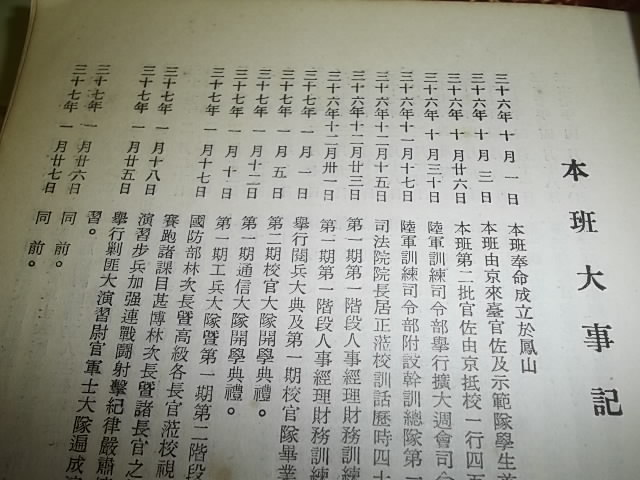 本班大事記
三十六年十月一日 本班奉命成立於鳳山
三十六年十月三日 本班由京來臺官佐及示範隊學生並
三十六年十月廿六日 本班第二批官佐由京抵校一行四五
三十六年十月三十日 陸軍訓練司令部舉行擴大週會司令
三十六年十一月十七日 陸軍訓練司令部附設幹訓總隊第一
三十六年十二月十五日 司法院院長居正蒞校訓話歷時四十
三十六年十二月廿三日 第一期第一階段人事經理財務訓練
三十六年十二月卅一日 第一期第一階段人事經理財務訓練
三十七年一月一日 舉行閱兵大典及第一期校官隊畢業
三十七年一月五日 第二期校官大隊開學典禮。
三十七年一月十二日 第一期通信大隊開學典禮。
三十七年一月十日 第一期工兵大隊暨第一期第二階段
三十七年一月十七日 國防部林次長暨高級各長官蒞校視
賽跑諸課目甚博林次長暨諸長官之
三十七年一月十八日 演習步兵加强連戰鬪射擊紀律嚴肅
三十七年一月廿五日 舉行剿匪大演習尉官軍士大隊遍成
習。
三十七年一月廿六日 同前。
三十七年一月廿七日 同前。